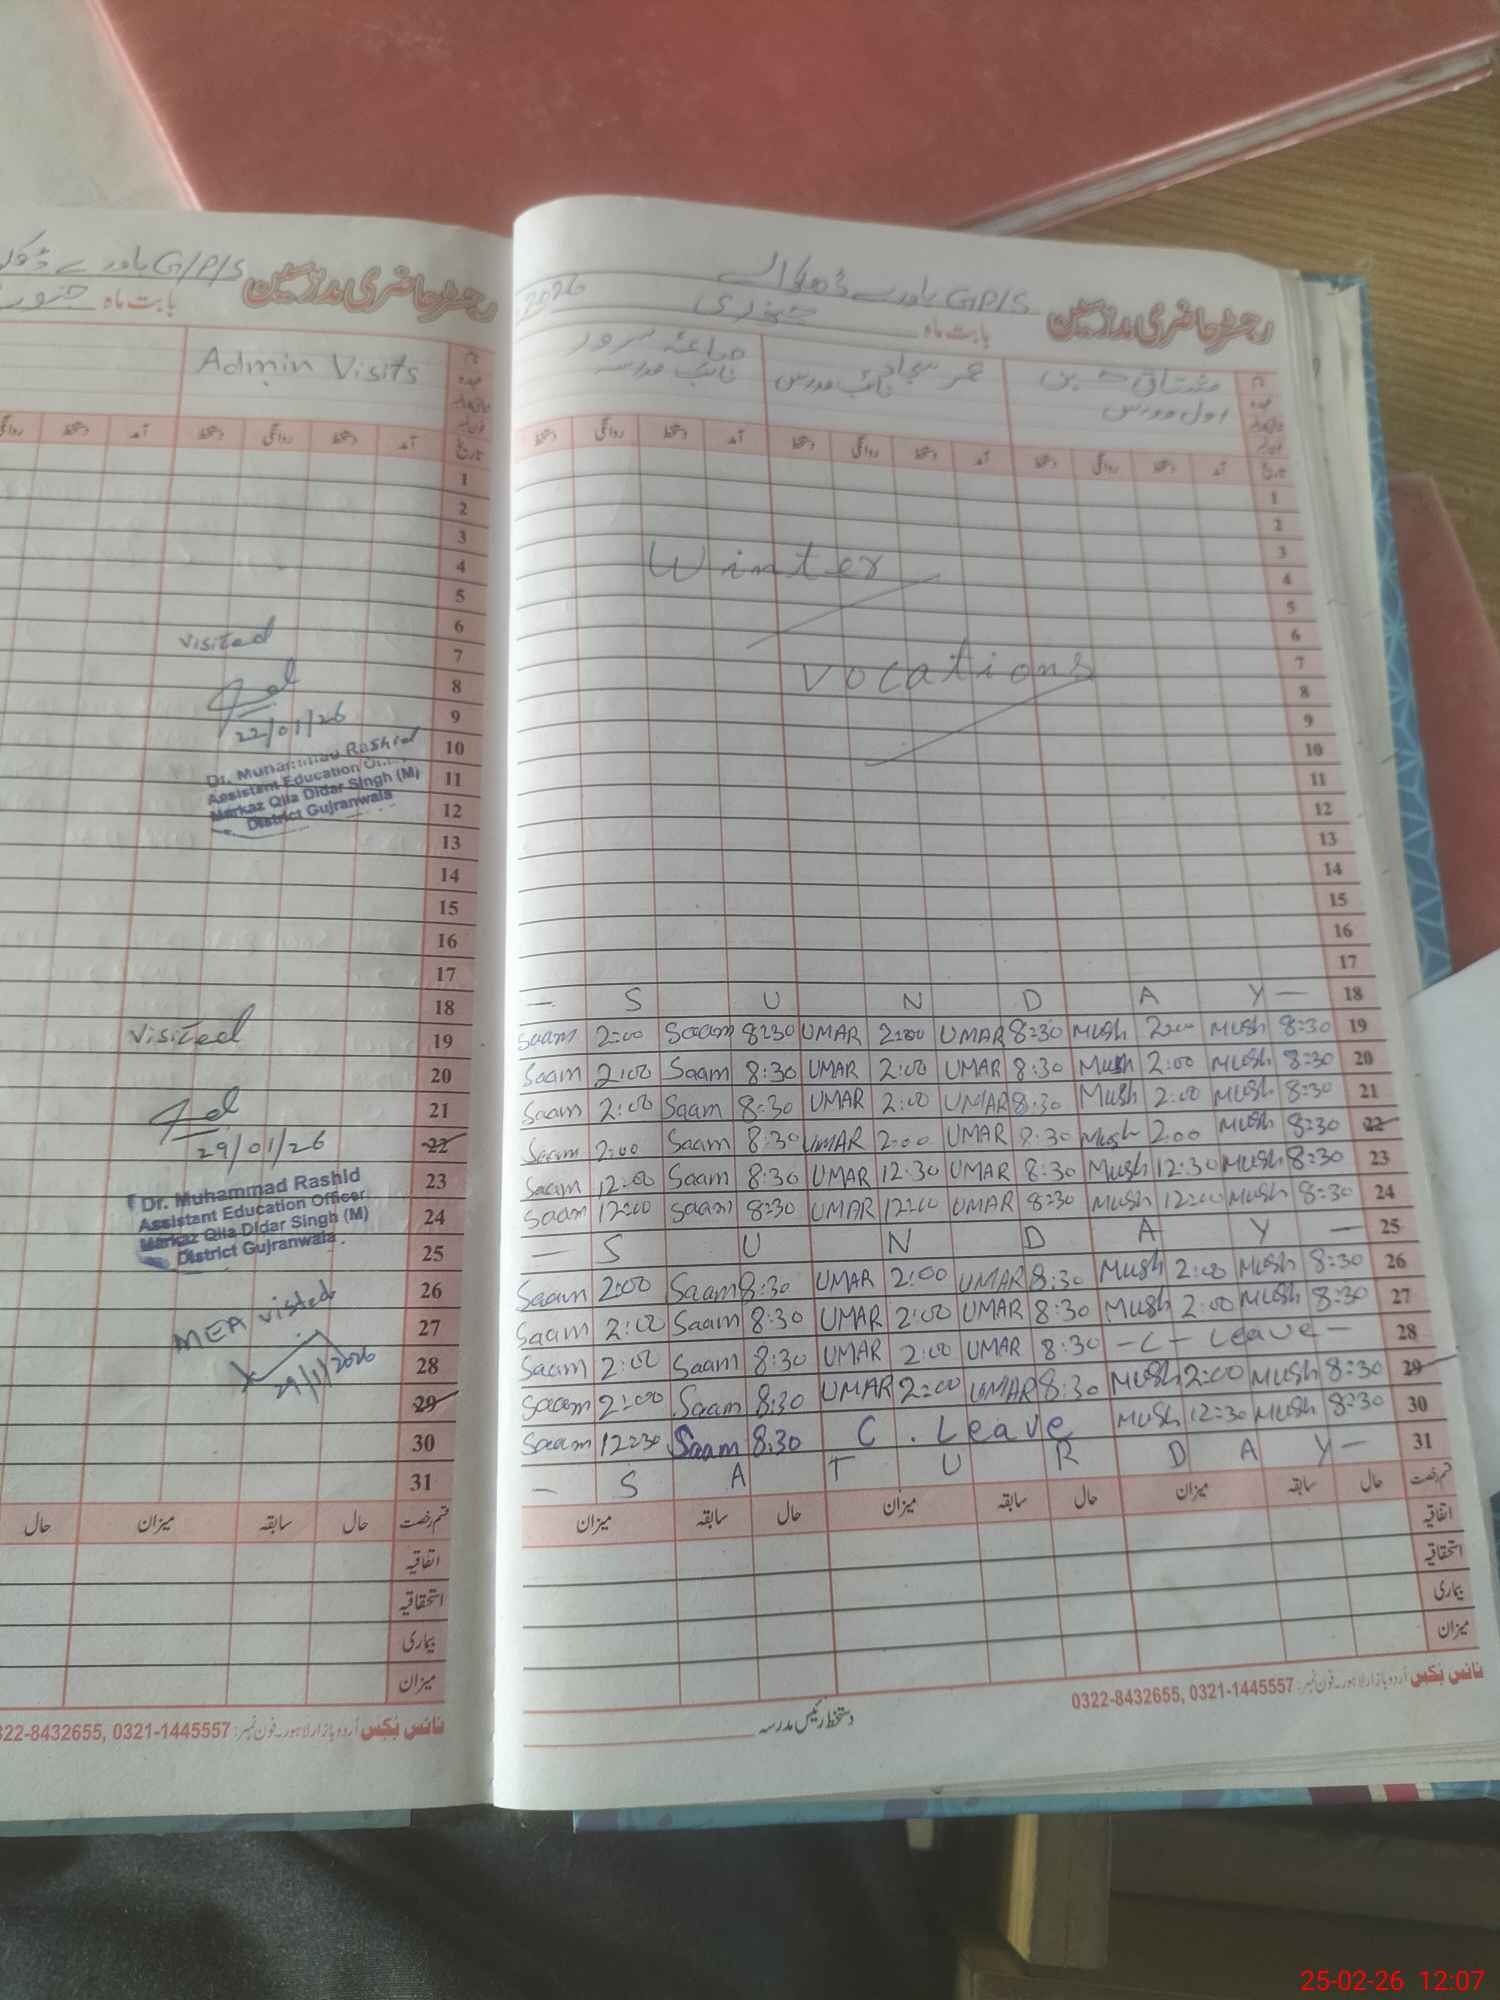 رجسٹر حاضری مدرسین G/P/S
بابت ماہ
Admin Visits
نام
عہدہ
آمد دستخط روانگی دستخط آمد دستخط روانگی
تاریخ
1
2
3
4
5
6
visited
7
8
22/01/26
9
10
Dr. Muhammad Rashid
11
Assistant Education
Markaz Qila Didar Singh (M)
12
District Gujranwala
13
14
15
16
17
18
visited
19
20
21
29/01/26
22
23
Dr. Muhammad Rashid
Assistant Education Officer
24
Markaz Qila Didar Singh (M)
District Gujranwala.
25
26
MEA visited
27
28
29/1/2026
29
30
31
قسم رخصت حال سابقہ میزان حال
اتفاقیہ
استحقاقیہ
بیماری
میزان
نائس بکس اُردو بازار لاہور۔ فون نمبر: 0321-1445557 ,322-8432655
رجسٹر حاضری مدرسین G/P/S
بابت ماہ جنوری 2026
نام
عہدہ
مشتاق حسین
اول مدرس
عمر سجاد
نائب مدرس
صائمہ سرور
نائب مدرسہ
تاریخ آمد دستخط روانگی دستخط آمد دستخط روانگی دستخط آمد دستخط روانگی دستخط
1
2
3
Winter
4
5
6
7
vocations
8
9
10
11
12
13
14
15
16
17
— S U N D A Y — 18
Saam 2:00 Saam 8:30 UMAR 2:00 UMAR 8:30 Mush 2:00 Mush 8:30 19
Saam 2:00 Saam 8:30 UMAR 2:00 UMAR 8:30 Mush 2:00 Mush 8:30 20
Saam 2:00 Saam 8:30 UMAR 2:00 UMAR 8:30 Mush 2:00 Mush 8:30 21
Saam 2:00 Saam 8:30 UMAR 2:00 UMAR 8:30 Mush 2:00 Mush 8:30 22
Saam 12:00 Saam 8:30 UMAR 12:30 UMAR 8:30 Mush 12:30 Mush 8:30 23
Saam 12:00 Saam 8:30 UMAR 12:00 UMAR 8:30 Mush 12:00 Mush 8:30 24
— S U N D A Y — 25
Saam 2:00 Saam 8:30 UMAR 2:00 UMAR 8:30 Mush 2:00 Mush 8:30 26
Saam 2:00 Saam 8:30 UMAR 2:00 UMAR 8:30 Mush 2:00 Mush 8:30 27
Saam 2:00 Saam 8:30 UMAR 2:00 UMAR 8:30 - C - Leave - 28
Saam 2:00 Saam 8:30 UMAR 2:00 UMAR 8:30 Mush 2:00 Mush 8:30 29
Saam 12:30 Saam 8:30 C. Leave Mush 12:30 Mush 8:30 30
— S A T U R D A Y — 31
قسم رخصت حال سابقہ میزان حال سابقہ میزان حال سابقہ میزان
اتفاقیہ
استحقاقیہ
بیماری
میزان
نائس بکس اُردو بازار لاہور۔ فون نمبر: 0321-1445557 ,0322-8432655
دستخط رئیس مدرسہ
25-02-26 12:07